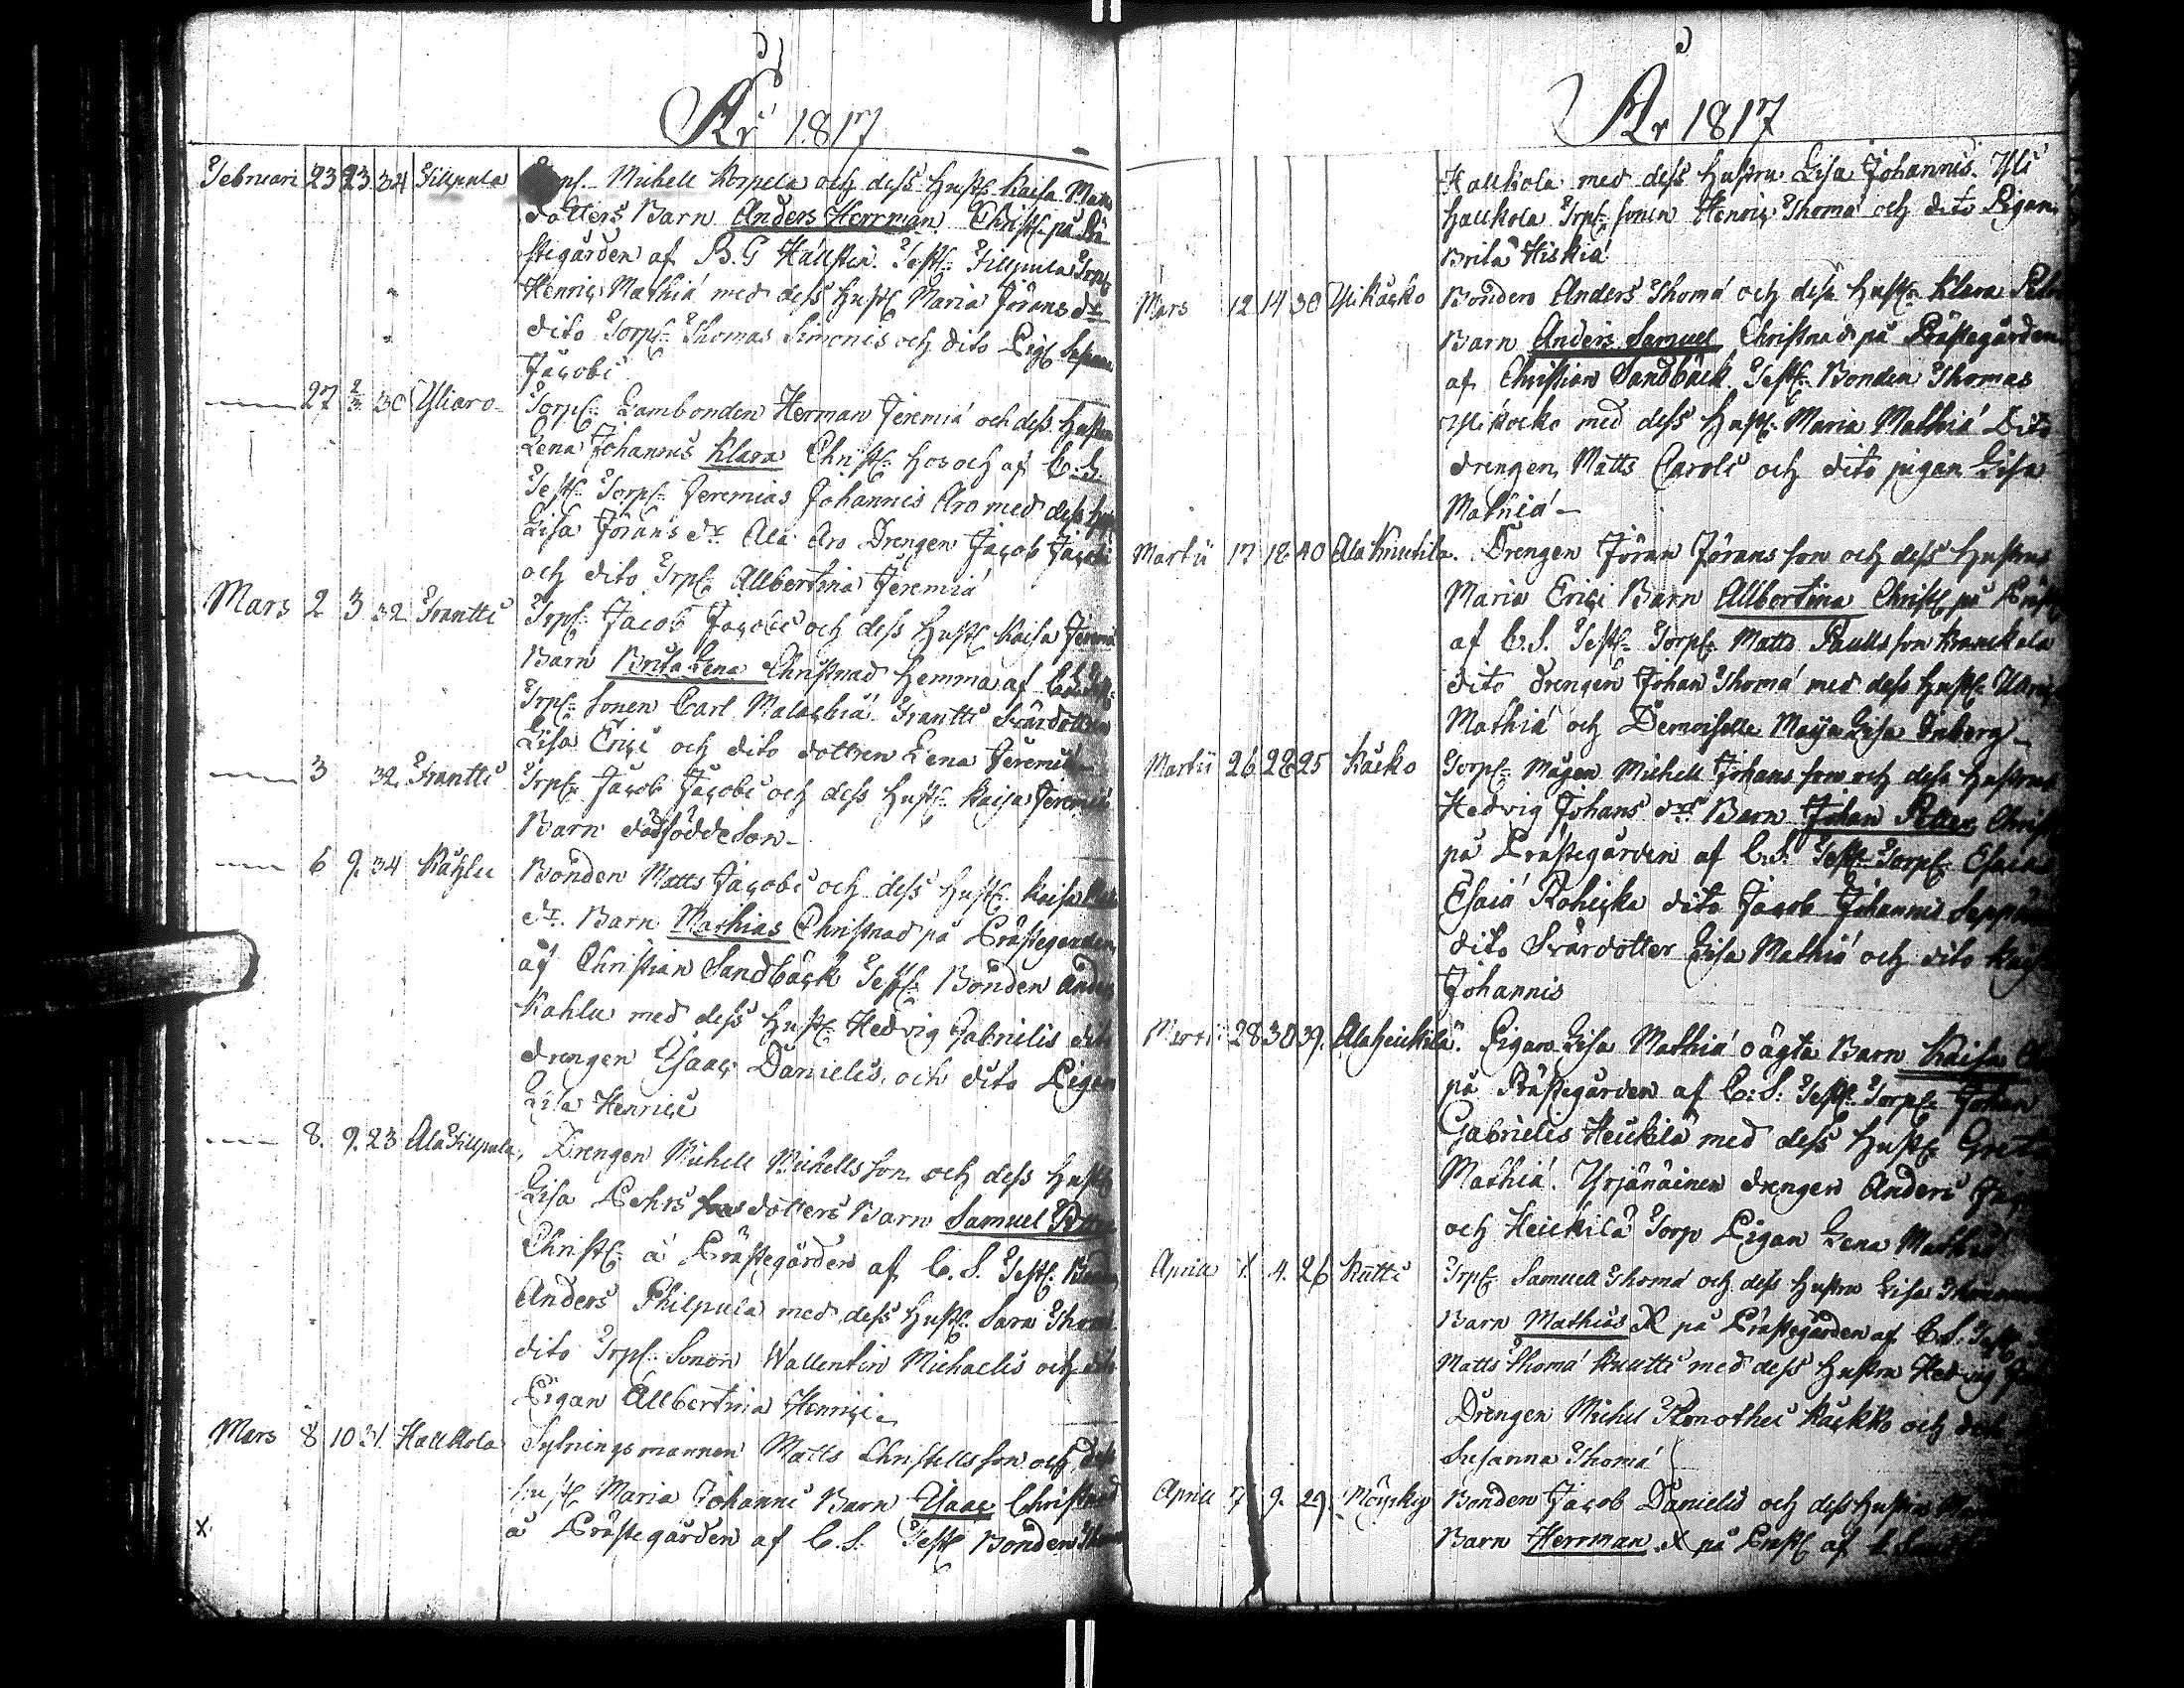 År 1817
Februari 23 23 34 Fillpula Torpf. Michell Korpela och dess Hustr. Kaisa Matts
dotters Barn Anders Herrman Christ. på Prä-
stegården af B. G Hällsten. Test. Fillpula Torp
Henric Mathiæ med dess Hust. Maria Jörans dr
dito Torpf. Thomas Simonis och dito Pig. Susanna
Jacobi
27 2/3 30 Yliaro Torpf. Lambonden Herman Jeremiæ och dess Hustru
Lena Johannis Klara Christ. hos och af C. S.
Test. Torpf. Jeremias Johannis Aro med dess Hust
Lisa Jörans dr Ala Aro Drengen Jacob Jacobi
och dito Torpf. Allbertina Jeremiæ
Mars 2 3 32 Frantti Torpf. Jacob Jacobi och dess Hust. Kaisa Jeremiæ
Barn Brita Lena Christnad Hemma af
Torpf. Sonen Carl Malachiæ Frantti Svärdottren
Lisa Erici och dito dottren Lena Jeremiæ
3 32 Frantti Torpf. Jacob Jacobi och dess Hust. Kaisa Jeremiæ
Barn dödföddeson
6 9. 34 Kählu Bonden Matts Jacobi och dess Hust. Kaisa
dr. Barn Mathias Christnad på Prästegården
af Christian Sandbäck Test. Bonden Anders
Kahlu med dess Hust. Hedvig Gabrielis dito
drengen Isaac Danielis, och dito Pigan
Lisa Henrici
8. 9. 23 Ala Fillpula, Drengen Michell Michellsson och dess Hust
Lisa Pehrs dotters Barn Samuel Petter
Christ. å Prästegården af C. S. Test. Bonden
Anders Philpula med dess Hust. Sara Thomæ
dito Torpf. Sonen Wallentin Michaelis och dito
Pigan Allbertina Henrici
Mars 8 10 31. Hallkola Sytningsmannen Matts Christellsson och dess
Hust Maria Johannis Barn Isaac Christnad
X å Prästegården af C. S. Test Bonden Thomas
År 1817
Hallkola med dess Hustru Lisa Johannis. Yli
Hallkola Torpf. sonen Henric Thomæ och dito Pigan
Brita Hiskiæ
Mars 12 14 30 Yli Käcko Bonden Anders Thomæ och dess Hustr. Klara Petri
Barn Anders Samuel Christnad på Prästegården
af Christian Sandbäck Test. Bonden Thomas
Yli Kocko med dess Hust. Maria Mathiæ Dito
drengen, Matts Caroli och dito pigan Lisa
Mathiæ
Martii 17 18 40 Ala Knutila. Drengen Jöran Jöransson och dess Hustru
Maria Erici Barn Allbertina Christ på Präst
af C. S. Test. Torpf. Matts Paulsson
dito drengen Johan Thomæ med dess Hust.
Mathiæ och Demoiselle Maija Lisa Enberg
Martii 26 28 25 Käcko Torpf. Mågen Michell Johansson och dess Hustru
Hedvig Johans drs Barn Johan Petter Christ
på Prästegården af C. S. Test. Torpf. Esaias
Esaiæ dito Jacob Johannis
dito Svärdotter Lisa Mathiæ och dito Kaisa
Johannis
Martii 28 30 39. Ala Heickilä. Pigan Lisa Mathiæ oägta Barn Kaisa
på Prästegården af C: S: Test. Torpf. Johan
Gabrielis Heickilä med dess Hust. Greta
Mathiæ. Yrjänäinen drengen Anders
och Heickilä Torp Pigan Lena Mathiæ
April 1. 4. 26 Knutti Torpf. Samuell Thomæ och dess Hustru Lisa
Barn Mathias X på Prästegården af C. S. Test
Matts Thomæ Knutti med dess Hustru Hedvig
Drengen Michel Timothei Käckko och dito
Susanna Thomæ
April 7 9. 29. Möyskey Bonden Jacob Danielis och dess Hustru
Barn Herrman. X på Präst af